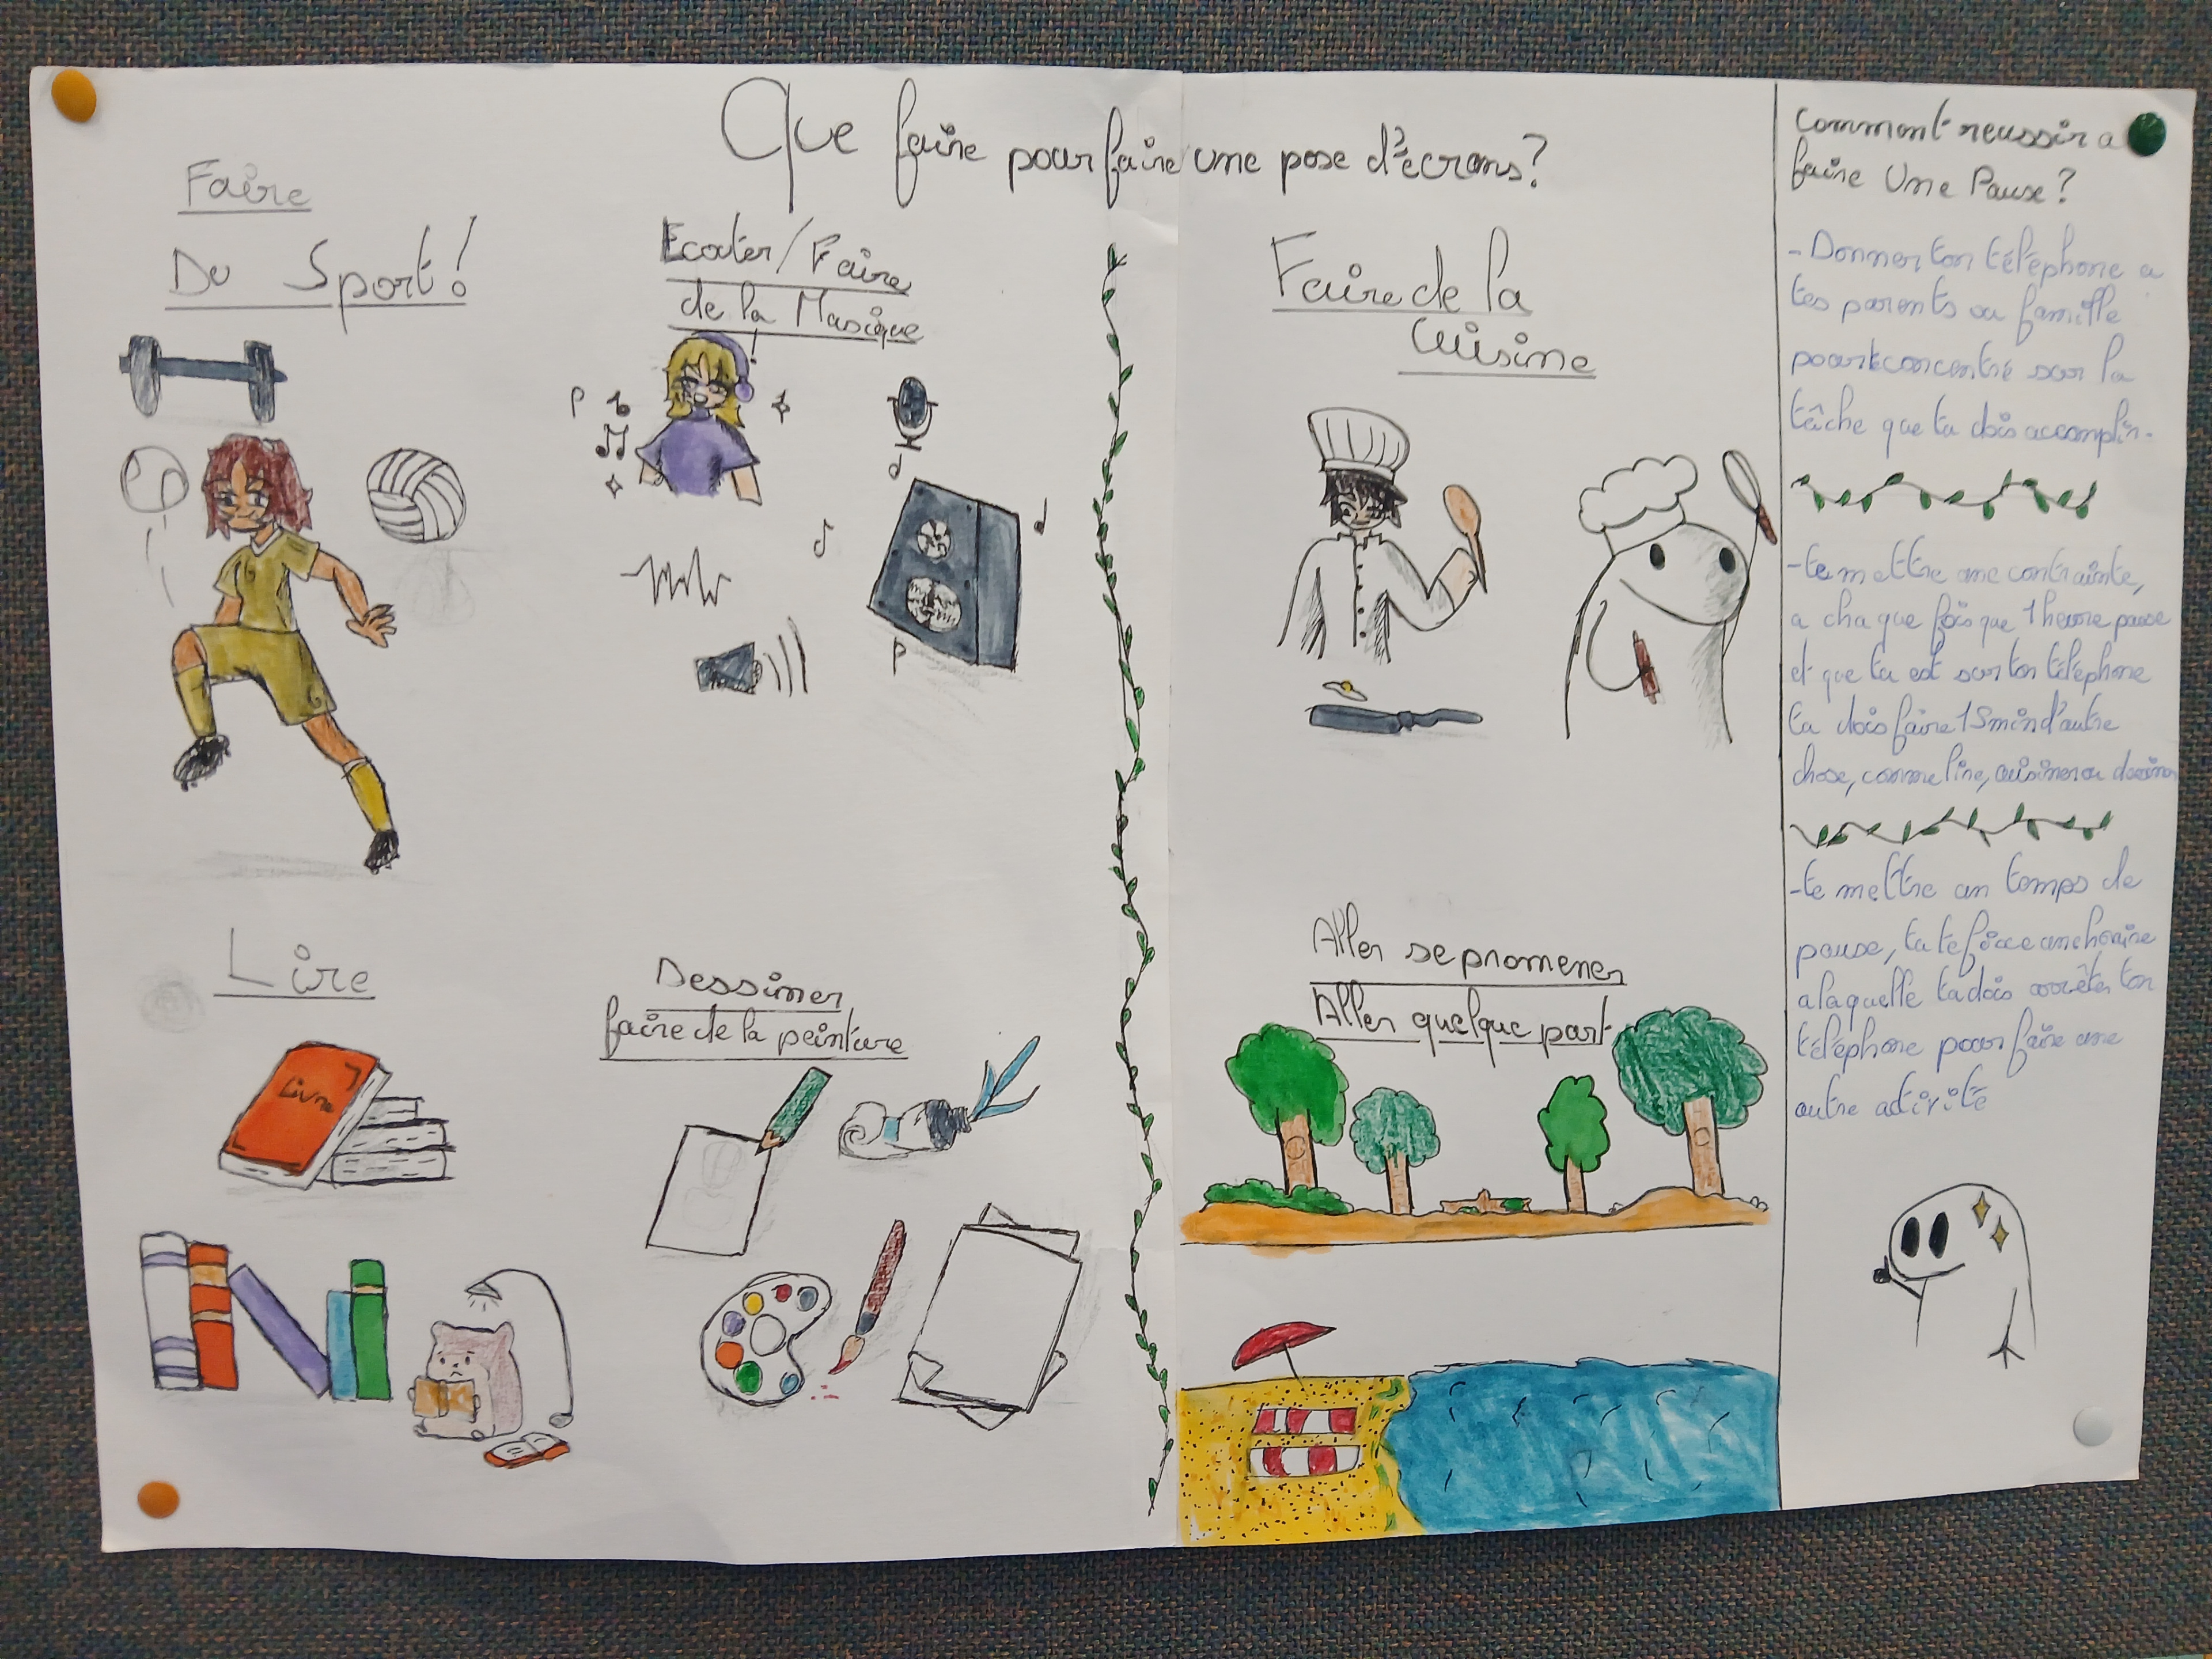 Que faire pour faire une pose d'écrans?
Faire
Du Sport!
Ecouter/Faire
de la Musique
Faire de la
Cuisine
Lire
Livre
Dessiner
faire de la peinture
Aller se promener
Aller quelque part
Comment reussir a
faire Une Pause?
-Donner ton téléphone a
tes parents ou famille
pour te concentré sur la
tâche que tu dois accomplir.
-te mettre une contrainte,
a chaque fois que 1 heure passe
et que tu est sur ton téléphone
tu dois faire 15 min d'autre
chose, comme lire, cuisiner ou dessiner
-te mettre un temps de
pause, tu te fixe une horaire
a laquelle tu dois arrêter ton
téléphone pour faire une
autre activité